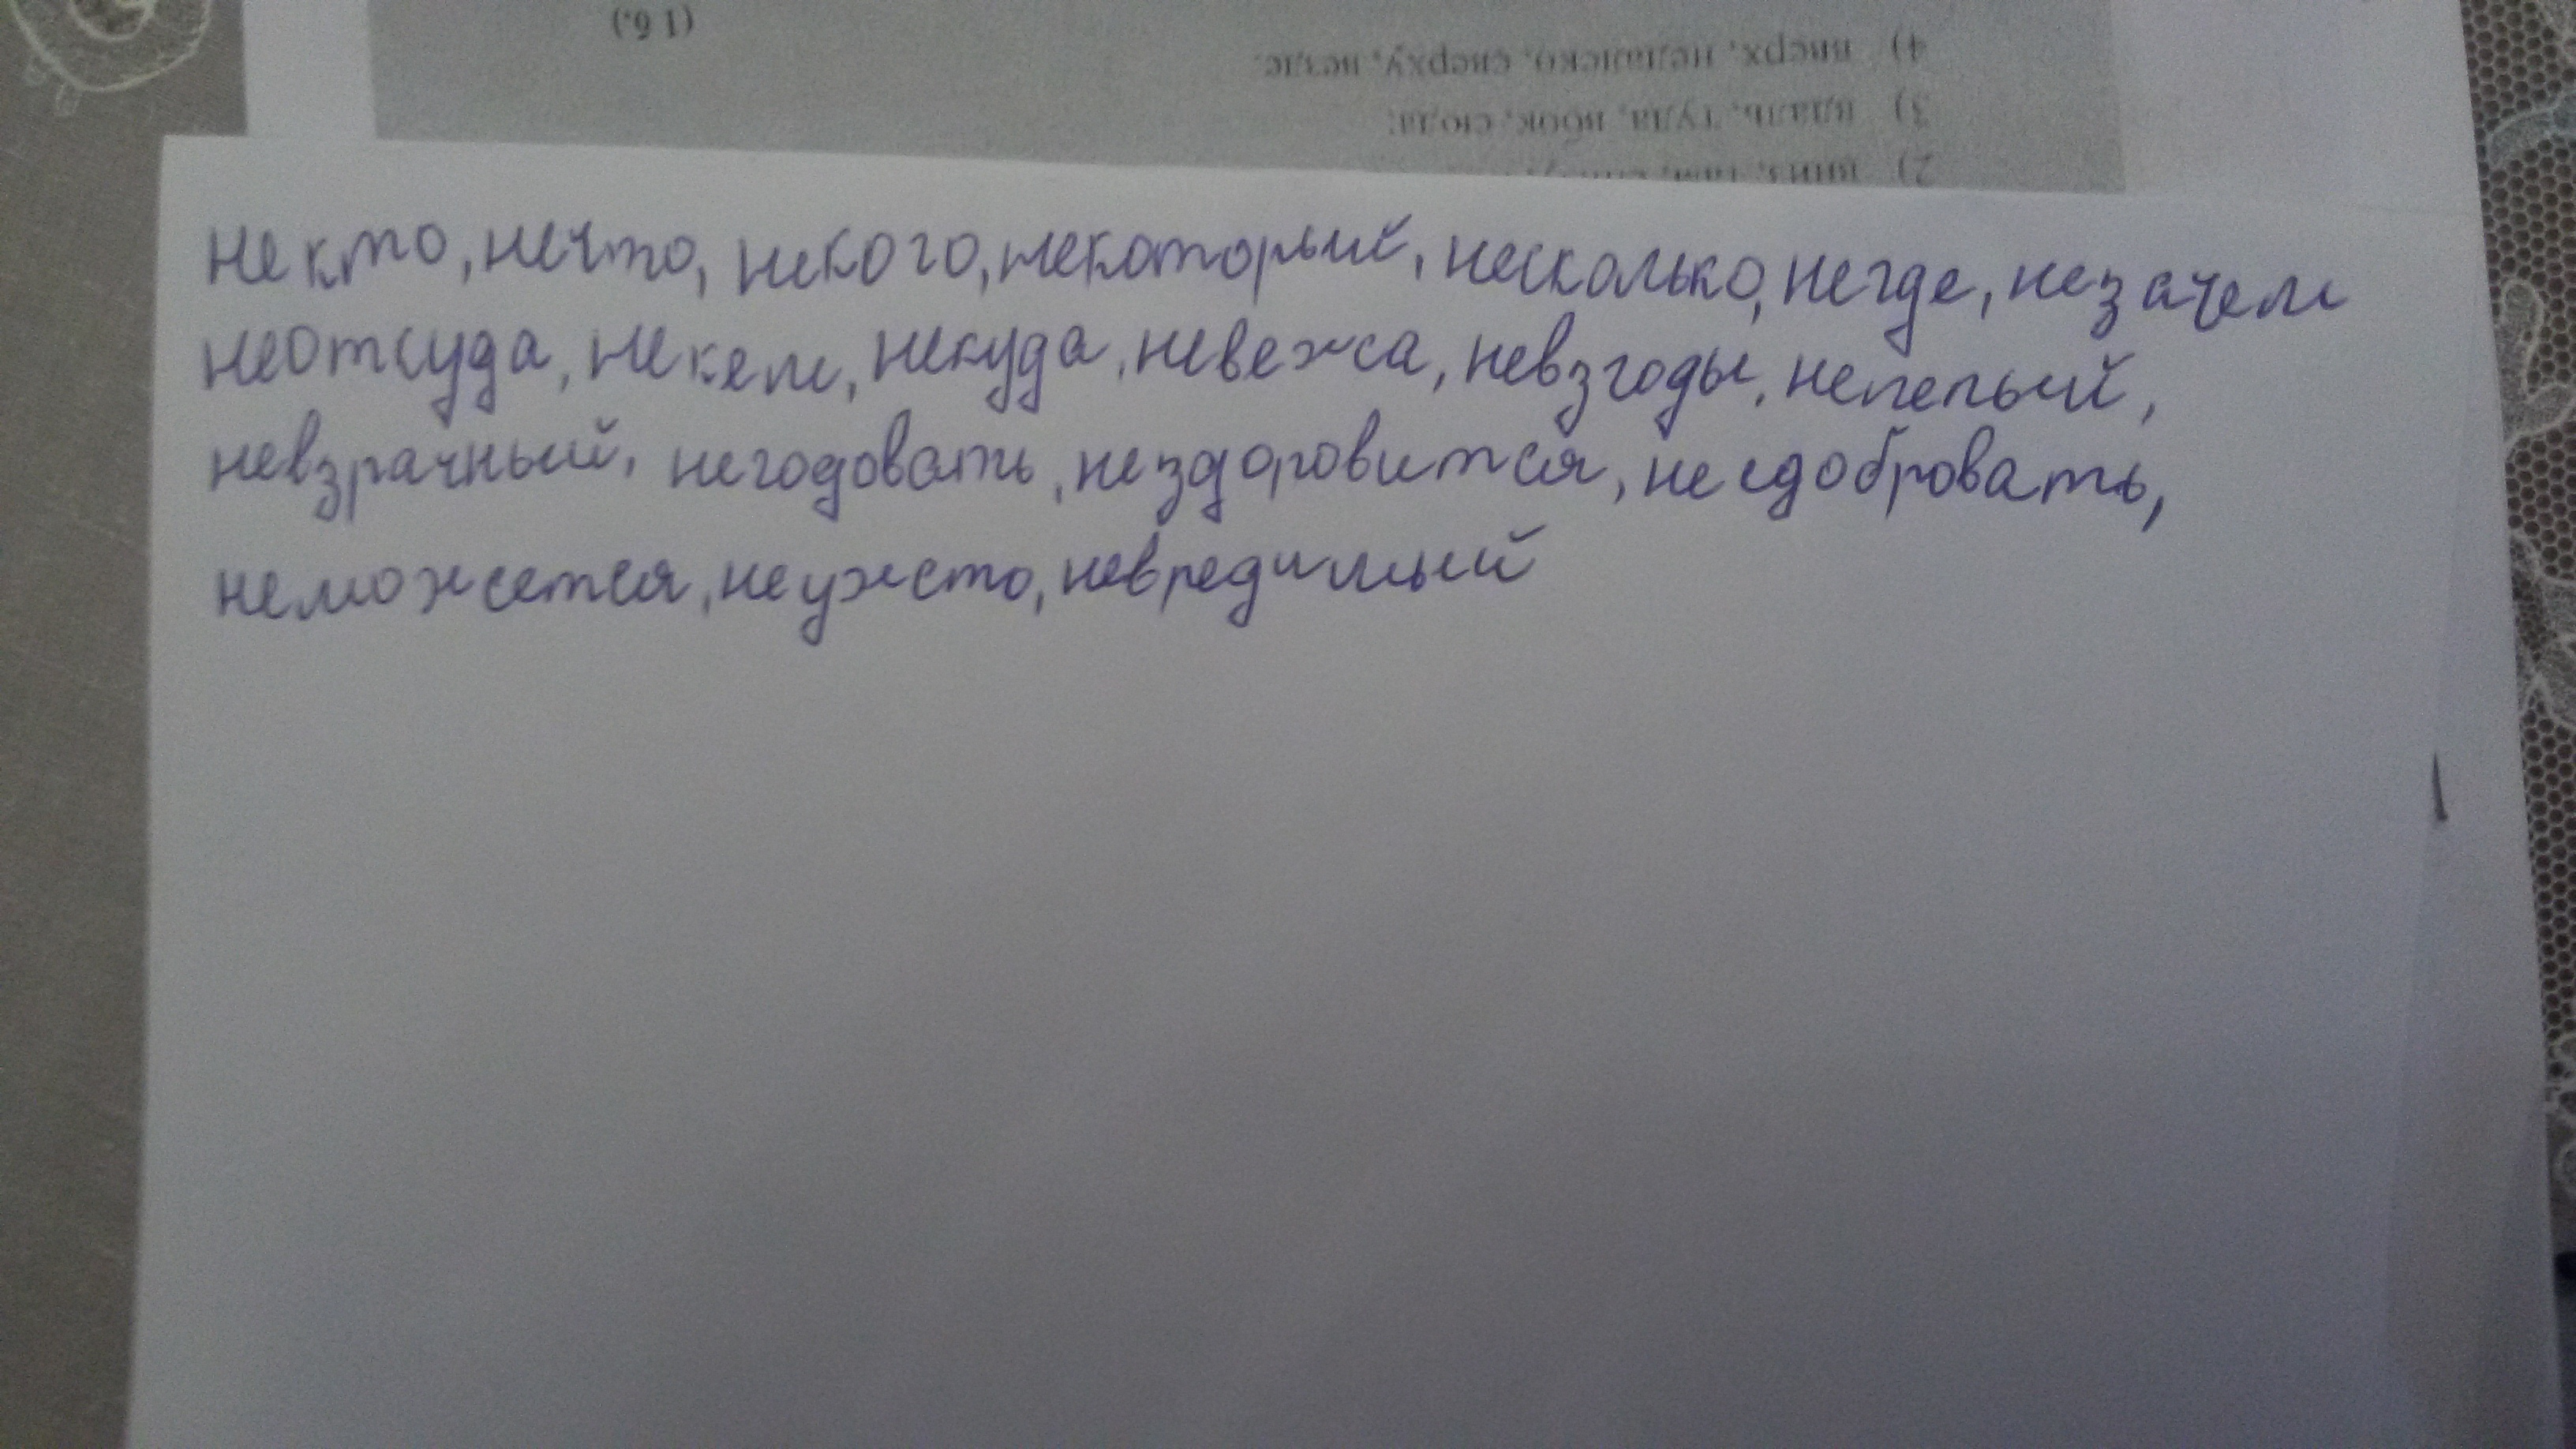 (1 б.)
4) вверх, недалеко, сверху, везде.
3) вдаль, туда, вбок, сюда;
некто, нечто, некого, некоторый, несколько, негде, незачем
неоткуда, некем, некуда, невежа, невзгоды, нелепый,
невзрачный, негодовать, нездоровится, несдобровать,
неможется, неужто, невредимый